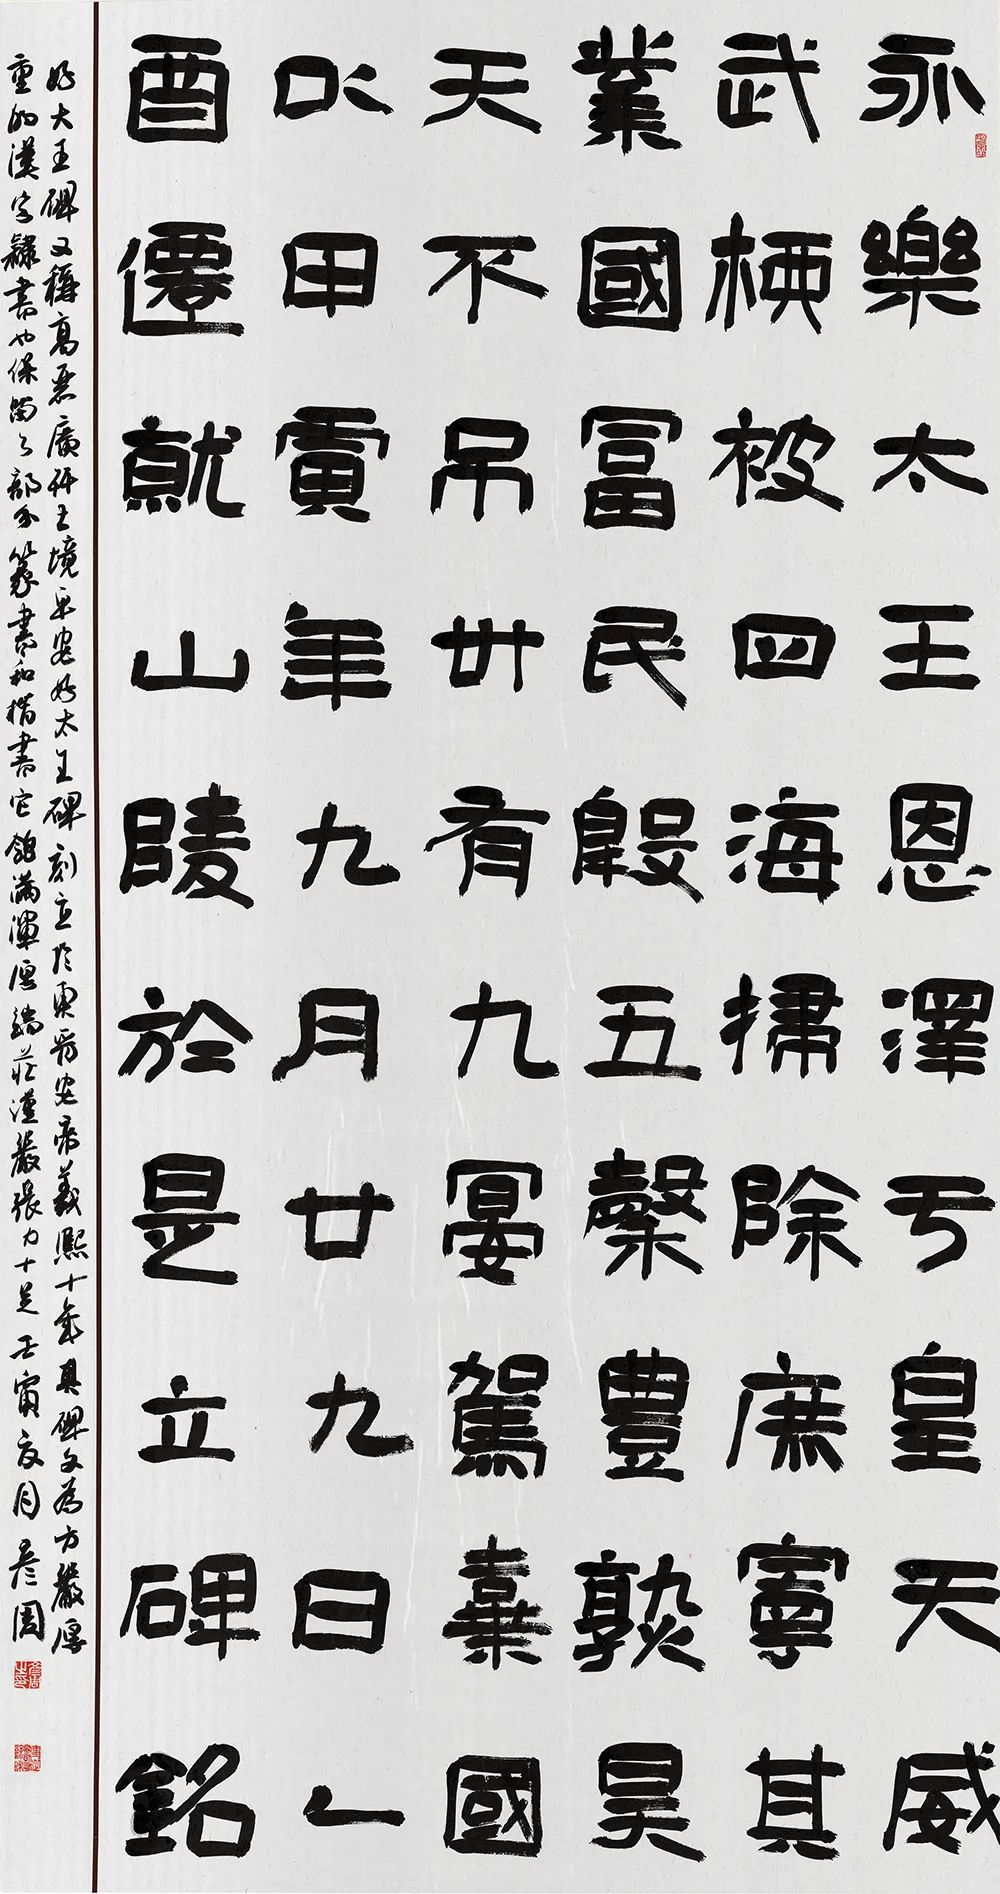 永樂太王恩澤亏皇天威
武被四海掃除庶寧其
業國富民殷五穀豐熟昊
天不弔卅有九宴駕棄國
以甲寅年九月廿九日乙
酉遷就山陵於是立碑銘
好大王碑又稱高麗廣開土境平安好太王碑刻立於東晉安帝義熙十年其碑文為方嚴厚
重的漢字隸書也保留了部分篆書和楷書它飽滿渾厚端莊謹嚴張力十足壬寅夏月彥